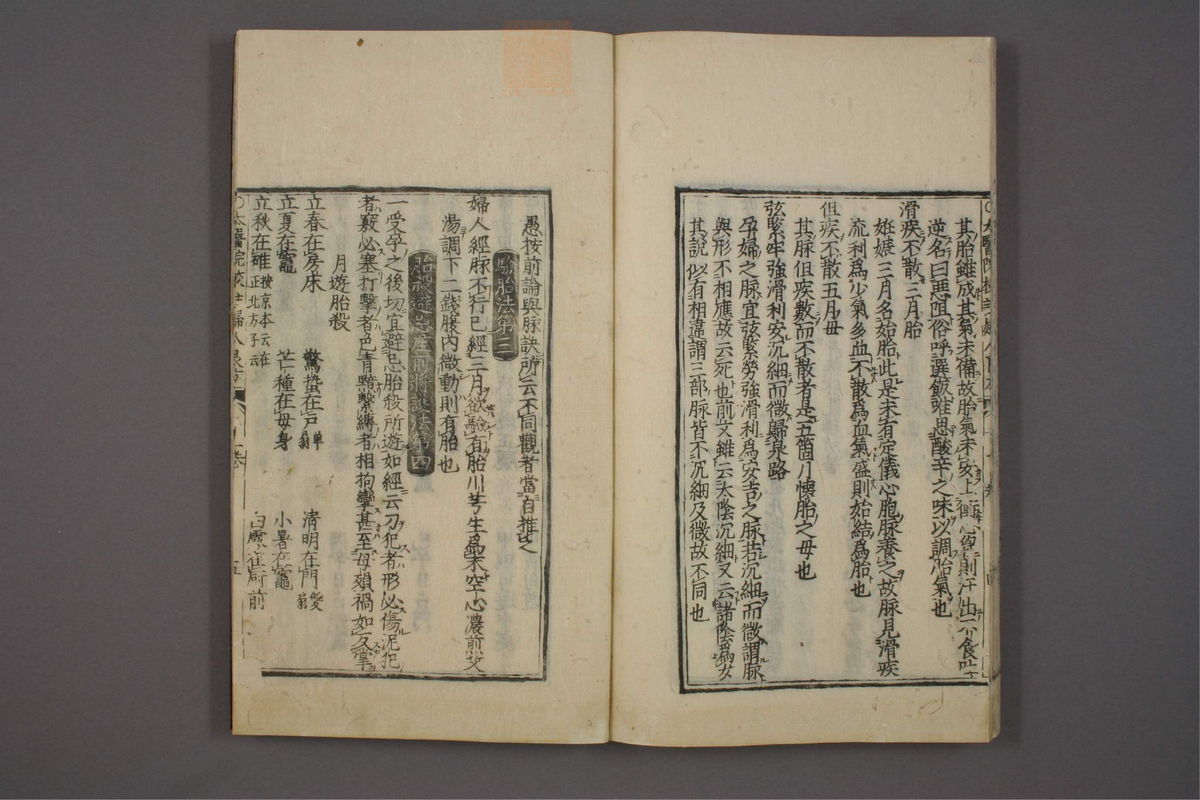 其胎雖成其氣未備故胎氣未安上衝心胷則汗出不食吐
逆名曰惡阻俗呼選飯唯思酸辛之味以調胎氣也
滑疾不散三月胎
姙娠三月名始胎此是未有定儀心胞脉養之故脉見滑疾
流利爲少氣多血不散爲血氣盛則始結爲胎也
但疾不散五月母
其脉但疾數而不散者是五箇月懷胎之母也
弦緊牢強滑利安沉細而微歸泉路
孕婦之脉宜弦緊勞強滑利爲安吉之脉若沉細而微謂脉
與形不相應故云死也前文雖云太陰沉細又云諸陰爲女
其說似有相違謂三部脉皆不沉細及微故不同也
愚按前論與脉訣所云不同觀者當自推之
驗胎法第三
婦人經脉不行已經三月欲驗有胎川芎生爲末空心濃煎艾
湯調下二錢腹内微動則有胎也
胎殺避忌産前將護法第四
一受孕之後切宜避忌胎殺所遊如經云刀犯者形必傷泥犯
者竅必塞打擊者色青黯繫縛者相拘攣甚至母殞禍如反掌
月遊胎殺
立春在房床 驚蟄在戸單扇 淸明在門雙扇
立夏在竈 芒種在母身 小暑在竈
立秋在碓按京本云在正北方子云 白露在厨前
太醫院校註婦人良方 一卷 五